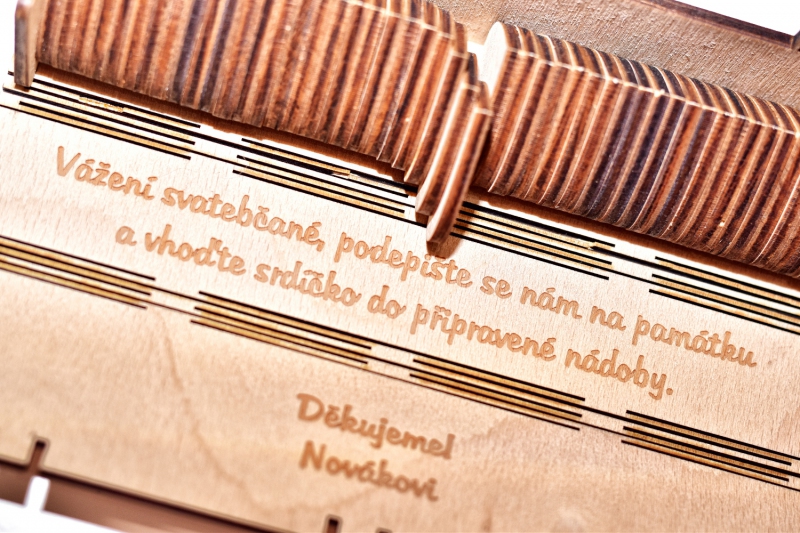 Vážení svatebčané, podepište se nám na památku
a vhoďte srdíčko do připravené nádoby.
Děkujeme!
Novákovi